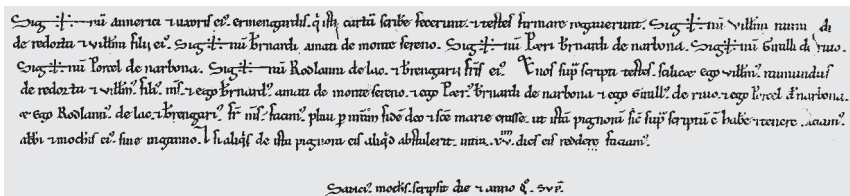 Sig-:-:-nũ Aimerici & uxoris ei9. ermengardis. q̃ istã cartã scribe fecerunt. & testes firmare rogauerunt. Sig-:-:-nũ Vitłmi rũmũdi
de redorta & vitłmi filii ei9. Sig-:-:-nũ b̃rnardi amati de monte sereno. Sig-:-:-nũ Petri b̃rnardi de narbona. Sig-:-:-nũ Girałli de riuo.
Sig-:-:-nũ Porcel de narbona. Sig-:-:-nũ Rodlanni de lac. & b̃rengarii fr̃is ei9. Et nos sup̃ scripti testes. scilicæ ego vitłm9 raimundus
de redorta & vitłm9 fili9 m̃s. & ego b̃rnard9 amati de monte sereno. & ego Petr9 b̃rnardi de narbona & ego Girałł9 de riuo. & ego Porcel de narbona.
& ego Rodlann9 de lac. & b̃rengari9 fr̃ m̃s. facim9 plaui p manũ fidẽ deo & scẽ marie ouisse. ut istã pignorã sic̃ sup̃ scriptũ ẽ habe & tenere faciam9
abbi & mochis ei9 sine inganno. Et si aliq̃s de ista pignora eis aliq̃d abstulerit. intra .xv. dies eis reddere faciam9.
Sanci9 mochs. scripsit die & anno q̃. sup̃.